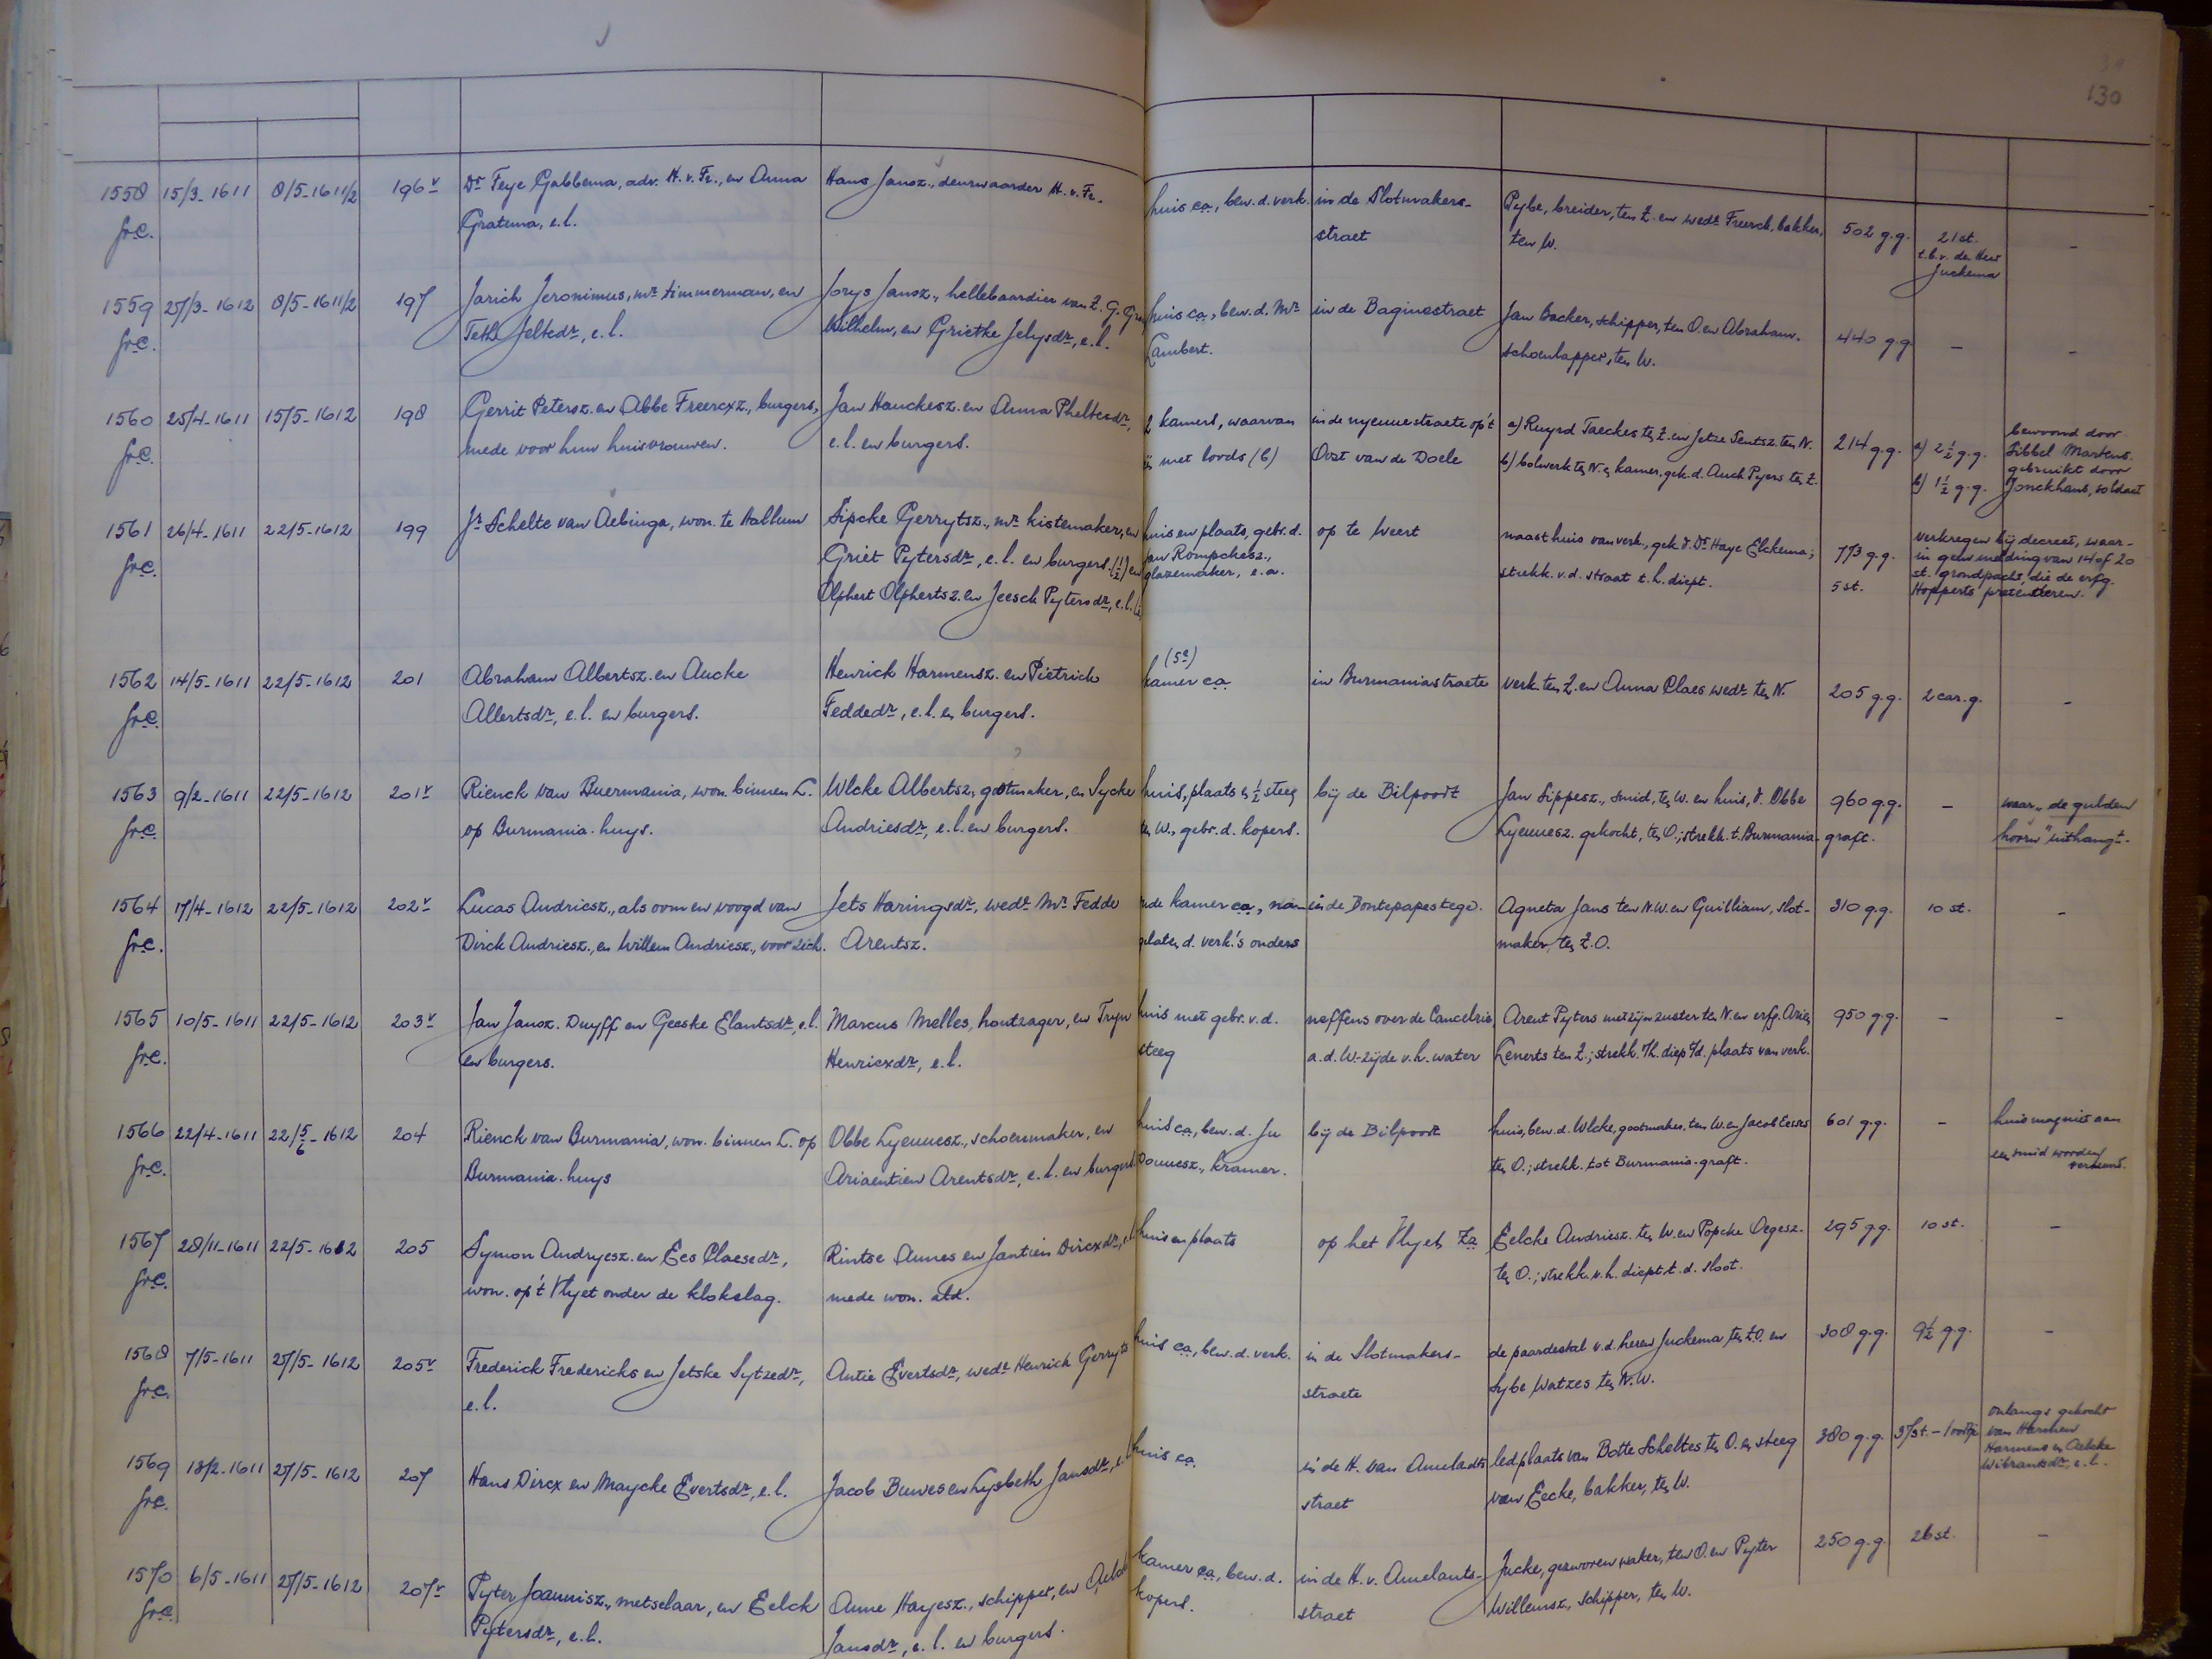 130
1558 15/3-1611 8/5-1611/2 196v Dr Feye Gabbema, adv. H.v.Fr., en Anna Hans Jansz., deurwaarder H.v.Fr. huis ca, bew. d. verk. in de Slotmakers- Pybe, breider, ten Z. en wedr Freerck, bakker, 502 g.g. 21 st. -
frc. Gratema, e.l. straet ten W. t.b.v. den Heer
Juckema
1559 27/3-1612 8/5-1611/2 197 Jarich Jeronimus, mr timmerman, en Jorys Jansz., hellebaardier van Z.G. huis ca, bew. d. Mr in de Baginestraet Jan Backer, schipper, ten O. en Abraham. 440 g.g. - -
frc. Jeltedr, e.l. Wilhelm, en Grietke Jelysdr, e.l. Lambert. schoenlapper, ten W.
1560 25/4-1611 15/5-1612 198 Gerrit Petersz. en Abbe Freercxz., burgers, Jan Hanckesz. en Anna Pheltesdr, 2 kamers, waarvan in de nyeuwestraete op't a) Ruyrd Taeckes ten Z. en Jetze Sentsz. ten N. 214 g.g. a) 2½ g.g. bewoond door
frc. mede voor hun huisvrouwen. e.l. en burgers. met loods (b) Oost van de Doele b) bolwerk ten N. en kamer, gek. d. Auck Pyers ten Z. b) 1½ g.g. Sibbel Martens.
gebruikt door
Jonckhans, soldaat
1561 26/4-1611 22/5-1612 199 Jr Schelte van Aebinga, won. te Hallum Sipcke Gerrytsz., mr kistemaker, en huis en plaats, gebr. d. op te Weert naast huis van verk., gek. d. Dr Haye Elckema; 773 g.g. verkregen bij decreet, waar-
frc. Griet Pytersdr, e.l. en burgers. (½) en Jan Rompckesz., strekk. v.d. straat t.h. diept. 5 st. in gehn melding van 14 of 20
Olphert Olphertsz. en Jeesck Pytersdr, e.l. glazemaker, e.a. st. grondpacht, die de erfg.
Hopperts presenteren.
1562 14/5-1611 22/5-1612 201 Abraham Albertsz. en Aucke Henrick Harmensz. en Pietrick (5e) kamer ca in Burmaniastraete verk. ten Z. en Anna Claes wedr ten N. 205 g.g. 2 car.g. -
frc. Allertsdr, e.l. en burgers. Feddedr, e.l. en burgers.
1563 9/2-1611 22/5-1612 201v Rienck van Buermania, won. binnen L. Wlcke Albertsz., gootmaker, en Sycke huis, plaats en ½ steeg bij de Bilpoort Jan Sippesz., smid, ten W. en huis, d. Obbe 960 g.g. - waar „de gulden
frc. op Burmania-huys. Andriesdr, e.l. en burgers. ten W., gebr. d. kopers. Lyeuwesz. gekocht, ten O.; strekk. t. Burmania-graft. hoorn" uithangt.
1564 17/4-1612 22/5-1612 202v Lucas Andriesz., als oom en voogd van Jets Haringsdr, wedr Mr Fedde kamer ca, in de Bontepapestege. Agneta Jans ten N.W. en Guilliam, slot- 310 g.g. 10 st. -
frc. Dirck Andriesz., en Willem Andriesz., voor zich. Arentsz. d. verk.'s ouders maker, ten Z.O.
1565 10/5-1611 22/5-1612 203v Jan Jansz. Duyff en Geeske Elantsdr, e.l. Marcus Melles, houtzager, en Tryn huis met gebr. v.d. neffens over de Cancelrie Arent Pyters met zijn zuster ten N. en erfg. Aries 950 g.g. - -
frc. en burgers. Henricxdr, e.l. steeg a.d. W-zijde v.h. water Lenerts ten Z.; strekk. v/h. diep t/d. plaats van verk.
1566 22/4-1611 22/5/6-1612 204 Rienck van Burmania, won. binnen L. op Obbe Lyeuwesz., schoenmaker, en huis ca, bew. d. Ju bij de Bilpoort huis, bew. d. Wlcke, gootmaker, ten W. en Jacob Eesses 601 g.g. - huis mag niet aan
frc. Burmania-huys Ariaentien Arentsdr, e.l. en burgers. Douwesz., kramer. ten O.; strekk. tot Burmania-graft. een smid worden
verhuurd.
1567 28/11-1611 22/5-1612 205 Symon Andryesz. en Ees Claesedr, Rintse Annes en Jantien Dircxdr, e.l. huis en plaats op het Vlyet, Za Eelcke Andriesz. ten W. en Popcke Oegesz. 295 g.g. 10 st. -
frc. won. op't Vlyet onder de klokslag. mede won. ald. ten O.; strekk. v.h. diept t.d. sloot.
1568 7/5-1611 27/5-1612 205v Frederick Fredericks en Jetske Sytzedr, Antie Evertsdr, wedr Henrick Gerryts huis ca, bew. d. verk. in de Slotmakers- de paardestal v.d. heren Juckema ten Z.O. en 308 g.g. 9½ g.g. -
frc. e.l. straete Sybe Watzes ten N.W.
1569 18/2-1611 27/5-1612 207 Hans Dircx en Maycke Evertsdr, e.l. Jacob Buwes en Lysbeth Jansdr, e.l. huis ca. in de H. van Amelands ledplaats van Botte Scheltes ten O. en steeg 380 g.g. 37 st. - 1 oortje onlangs gekocht
frc. straet van Eecke, bakker, ten W. van Harmen
Harmens en Aelcke
Wibrantsdr, e.l.
1570 6/5-1611 27/5-1612 207v Pyter Joannisz., metselaar, en Eelck Anne Hayesz., schipper, en kamer ca, bew. d. in de H. v. Amelants- Jucke, gezworen waker, ten O. en Pyter 250 g.g. 26 st. -
frc. Pytersdr, e.l. Jansdr, e.l. en burgers. kopers. straet Willemsz., schipper, ten W.